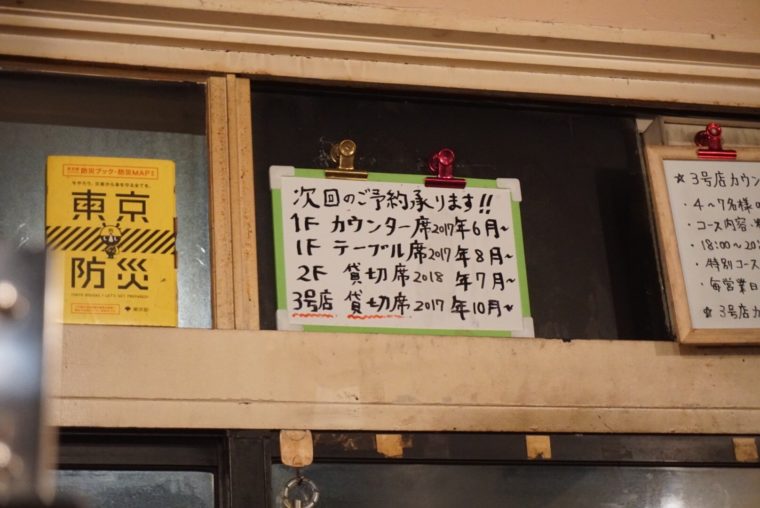 防災ブック・防災MAP
東京
防災
次回のご予約承ります!!
1F カウンター席2017年6月~
1F テーブル席2017年8月~
2F 貸切席2018年7月~
3号店 貸切席2017年10月~
★3号店カウン
・4~7名様
・コース内容・
・18:00~20
・特別コース
・毎営業日
☆3号店カ